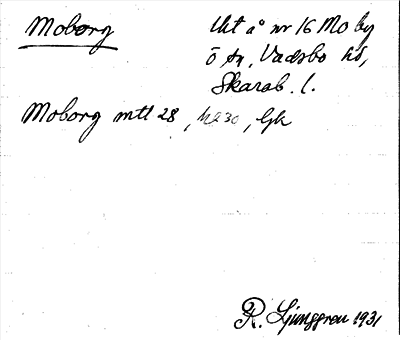 Moborg
Utt å nr 16 Mo by
Ö sn, Vadsbo hd,
Skarab. l.
Moborg mtl 28, h230, Gk
R. Ljunggren 1931